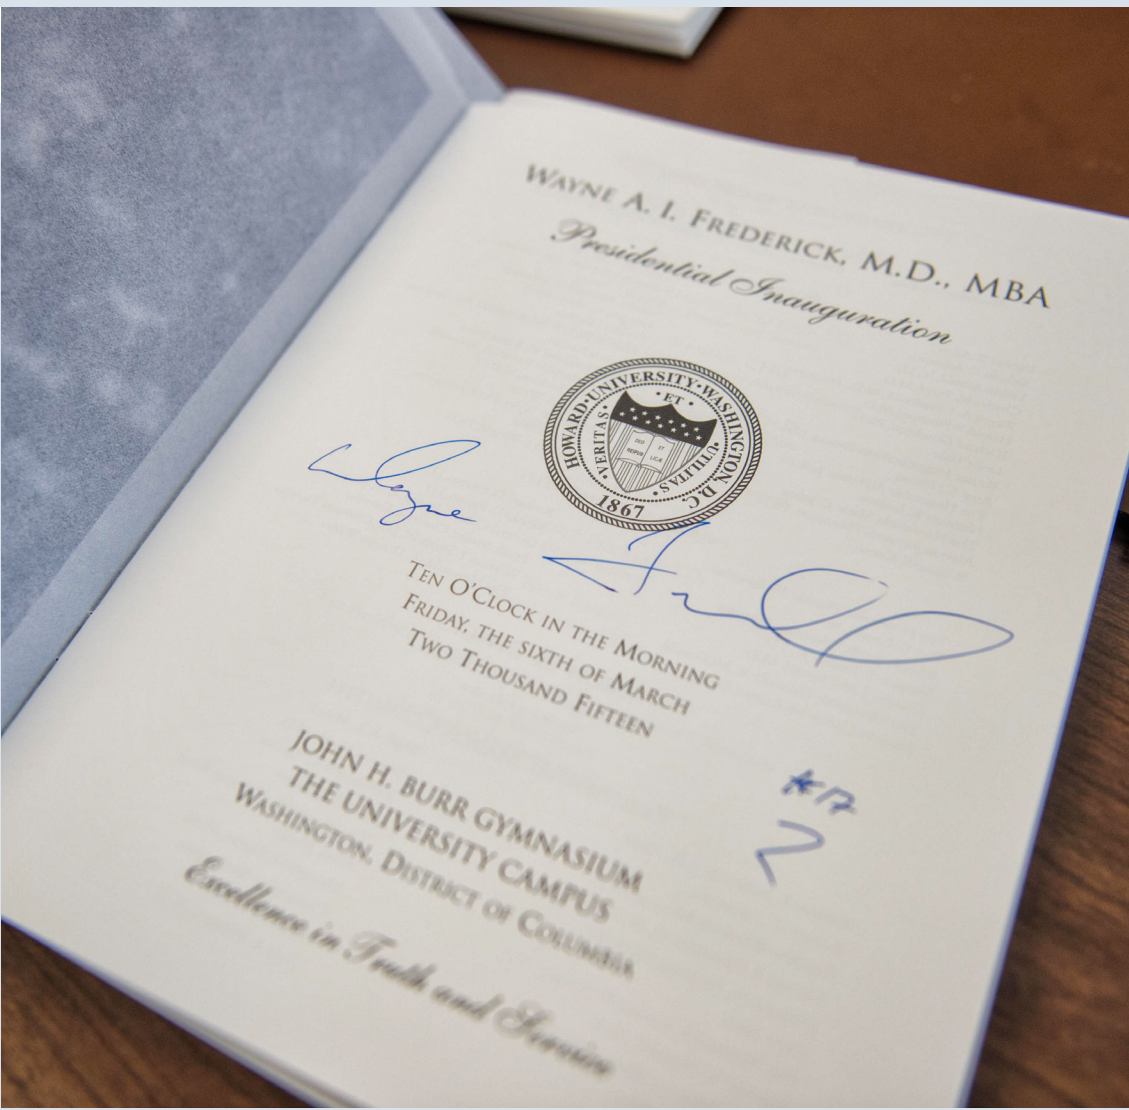 WAYNE A. I. FREDERICK, M.D., MBA
Presidential Inauguration
HOWARD·UNIVERSITY·WASHINGTON, D.C.
·VERITAS·ET·UTILITAS·
DEO ET
REIPUB LICÆ
1867
Wayne
TEN O'CLOCK IN THE MORNING
FRIDAY, THE SIXTH OF MARCH
TWO THOUSAND FIFTEEN
#17
JOHN H. BURR GYMNASIUM
THE UNIVERSITY CAMPUS
WASHINGTON, DISTRICT OF COLUMBIA
Excellence in Truth and Service